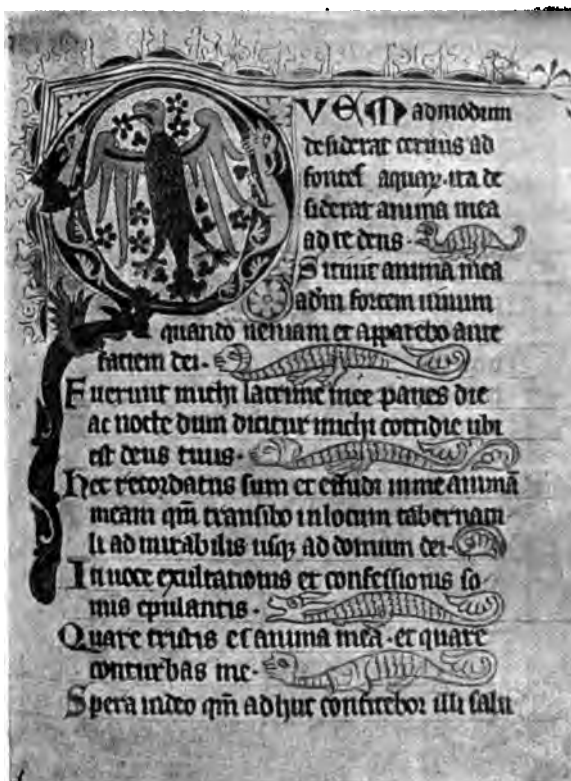 QVEM admodum
desiderat ceruus ad
fontes aquaꝝ · ita de
siderat anima mea
ad te deus ·
Sitiuit anima mea
ad dm̄ fontem uiuum
quando ueniam et apparebo ante
faciem dei ·
Fuerunt michi lacrime mee panes die
ac nocte dum dicitur michi cottidie ubi
est deus tuus ·
Hec recordatus sum et effudi in me animā
meam qm̄ transibo in locum tabernacu
li ad mirabilis usqꝫ ad domum dei ·
In uoce exultationis et confessionis so
nus epulantis ·
Quare tristis es anima mea · et quare
conturbas me ·
Spera in deo qm̄ adhuc confitebor illi salu